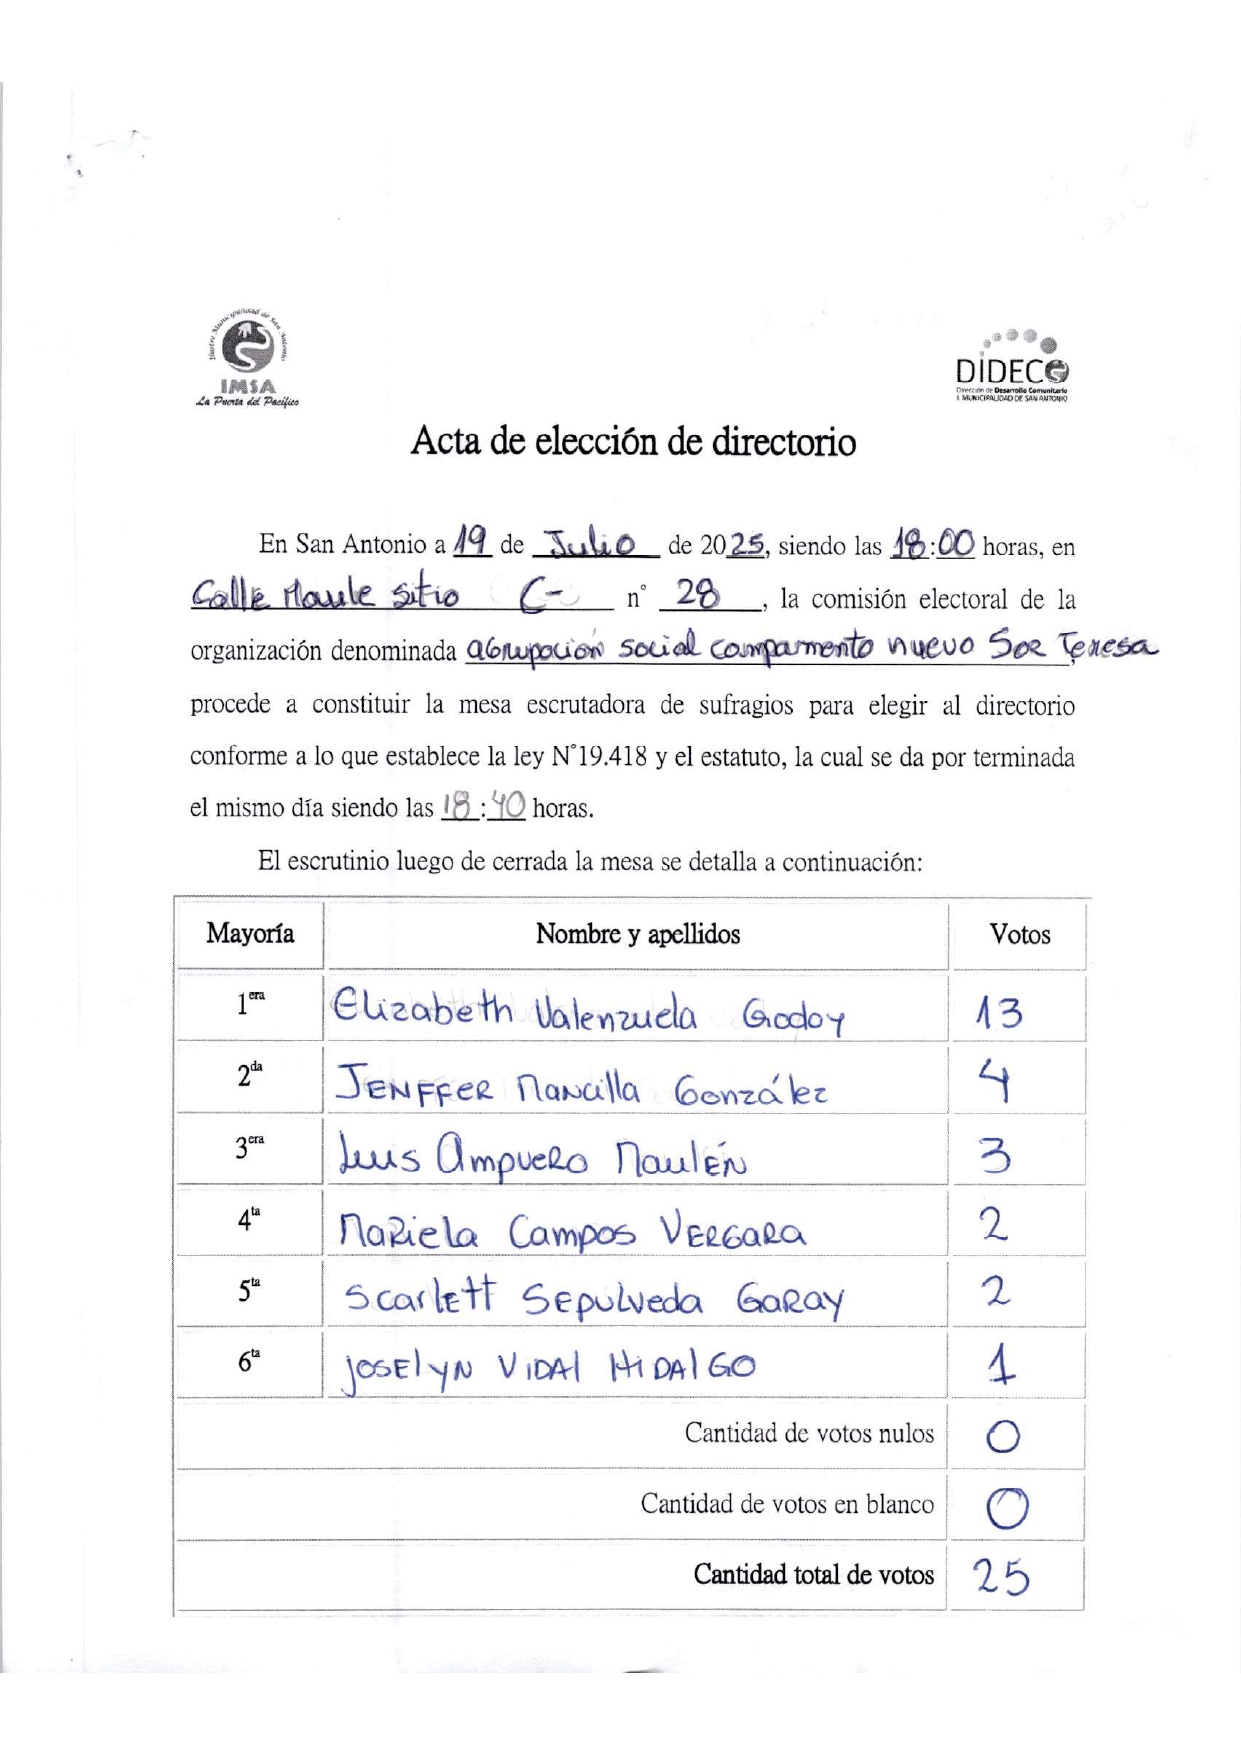 Ilustre Municipalidad de San Antonio
IMSA
La Puerta del Pacífico
DIDECO
Dirección de Desarrollo Comunitario
I. MUNICIPALIDAD DE SAN ANTONIO
Acta de elección de directorio
En San Antonio a 19 de Julio de 2025, siendo las 18:00 horas, en
Calle Maule sitio C- n° 28, la comisión electoral de la
organización denominada agrupación social campamento nuevo Sor Teresa,
procede a constituir la mesa escrutadora de sufragios para elegir al directorio
conforme a lo que establece la ley N°19.418 y el estatuto, la cual se da por terminada
el mismo día siendo las 18:40 horas.
El escrutinio luego de cerrada la mesa se detalla a continuación:
Mayoría Nombre y apellidos Votos
1era Elizabeth Valenzuela Godoy 13
2da JENFFER Mancilla González 4
3era Luis Ampuero Maulén 3
4ta Mariela Campos VERGARA 2
5ta Scarlett Sepulveda Garay 2
6ta Joselyn Vidal Hidalgo 1
Cantidad de votos nulos 0
Cantidad de votos en blanco 0
Cantidad total de votos 25